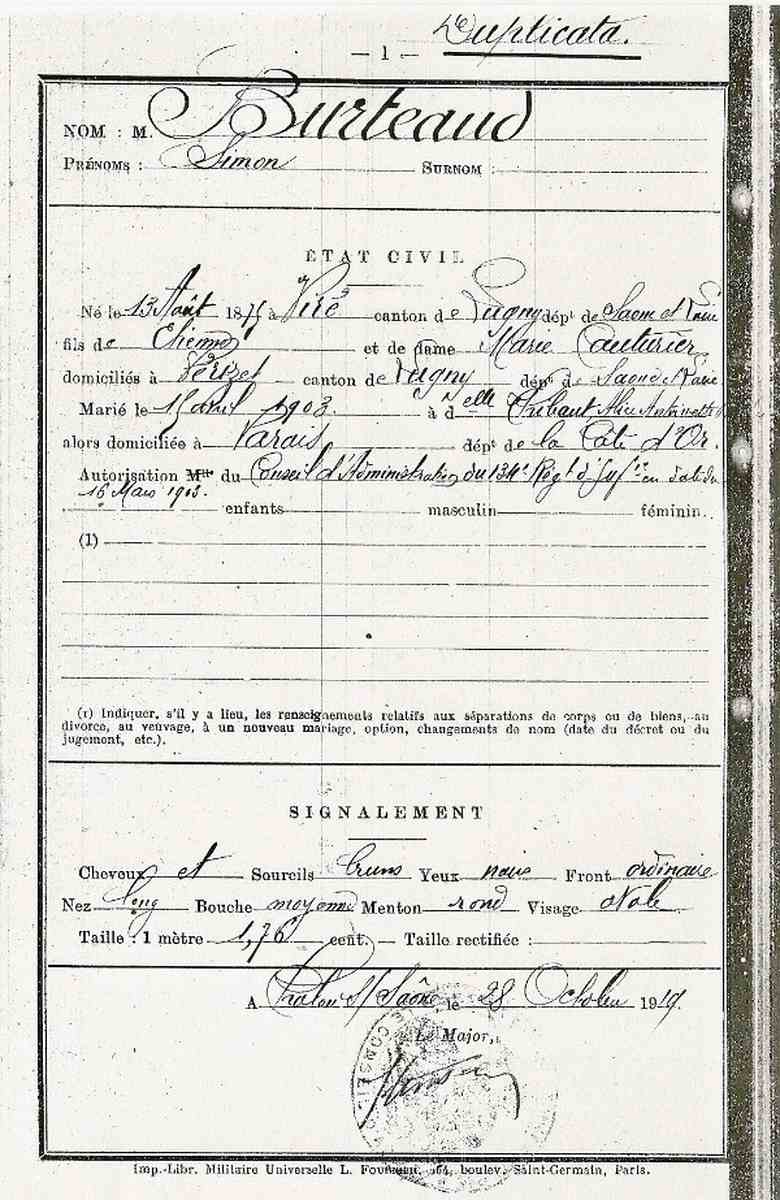 Duplicata.
— 1 —
NOM : M. Burteaud
PRÉNOMS : Simon SURNOM :
ÉTAT CIVIL
Né le 13 Août 1875 à Viré canton de Lugny dépt de Saône et Loire
fils de Etienne et de dame Marie Couturier
domiciliés à Vérizet canton de Lugny dépt de Saône et Loire
Marié le 15 avril 1903. à delle Thibaut Alice Antoinette
alors domiciliée à Varais dépt de la Côte d'Or.
Autorisation Mlle du Conseil d'Administration du 134e Régt d'Infie en date du
16 Mars 1903. enfants masculin féminin.
(1)
(1) Indiquer, s'il y a lieu, les renseignements relatifs aux séparations de corps ou de biens, au
divorce, au veuvage, à un nouveau mariage, option, changements de nom (date du décret ou du
jugement, etc.).
SIGNALEMENT
Cheveux et Sourcils bruns Yeux noirs Front ordinaire
Nez long Bouche moyenne Menton rond Visage ovale
Taille : 1 mètre 1,76 cent. — Taille rectifiée :
A Chalon s/ Saône, le 28 Octobre 1919.
Le Major,
CONSEIL
Imp.-Libr. Militaire Universelle L. Fournier, 264, boulev. Saint-Germain, Paris.